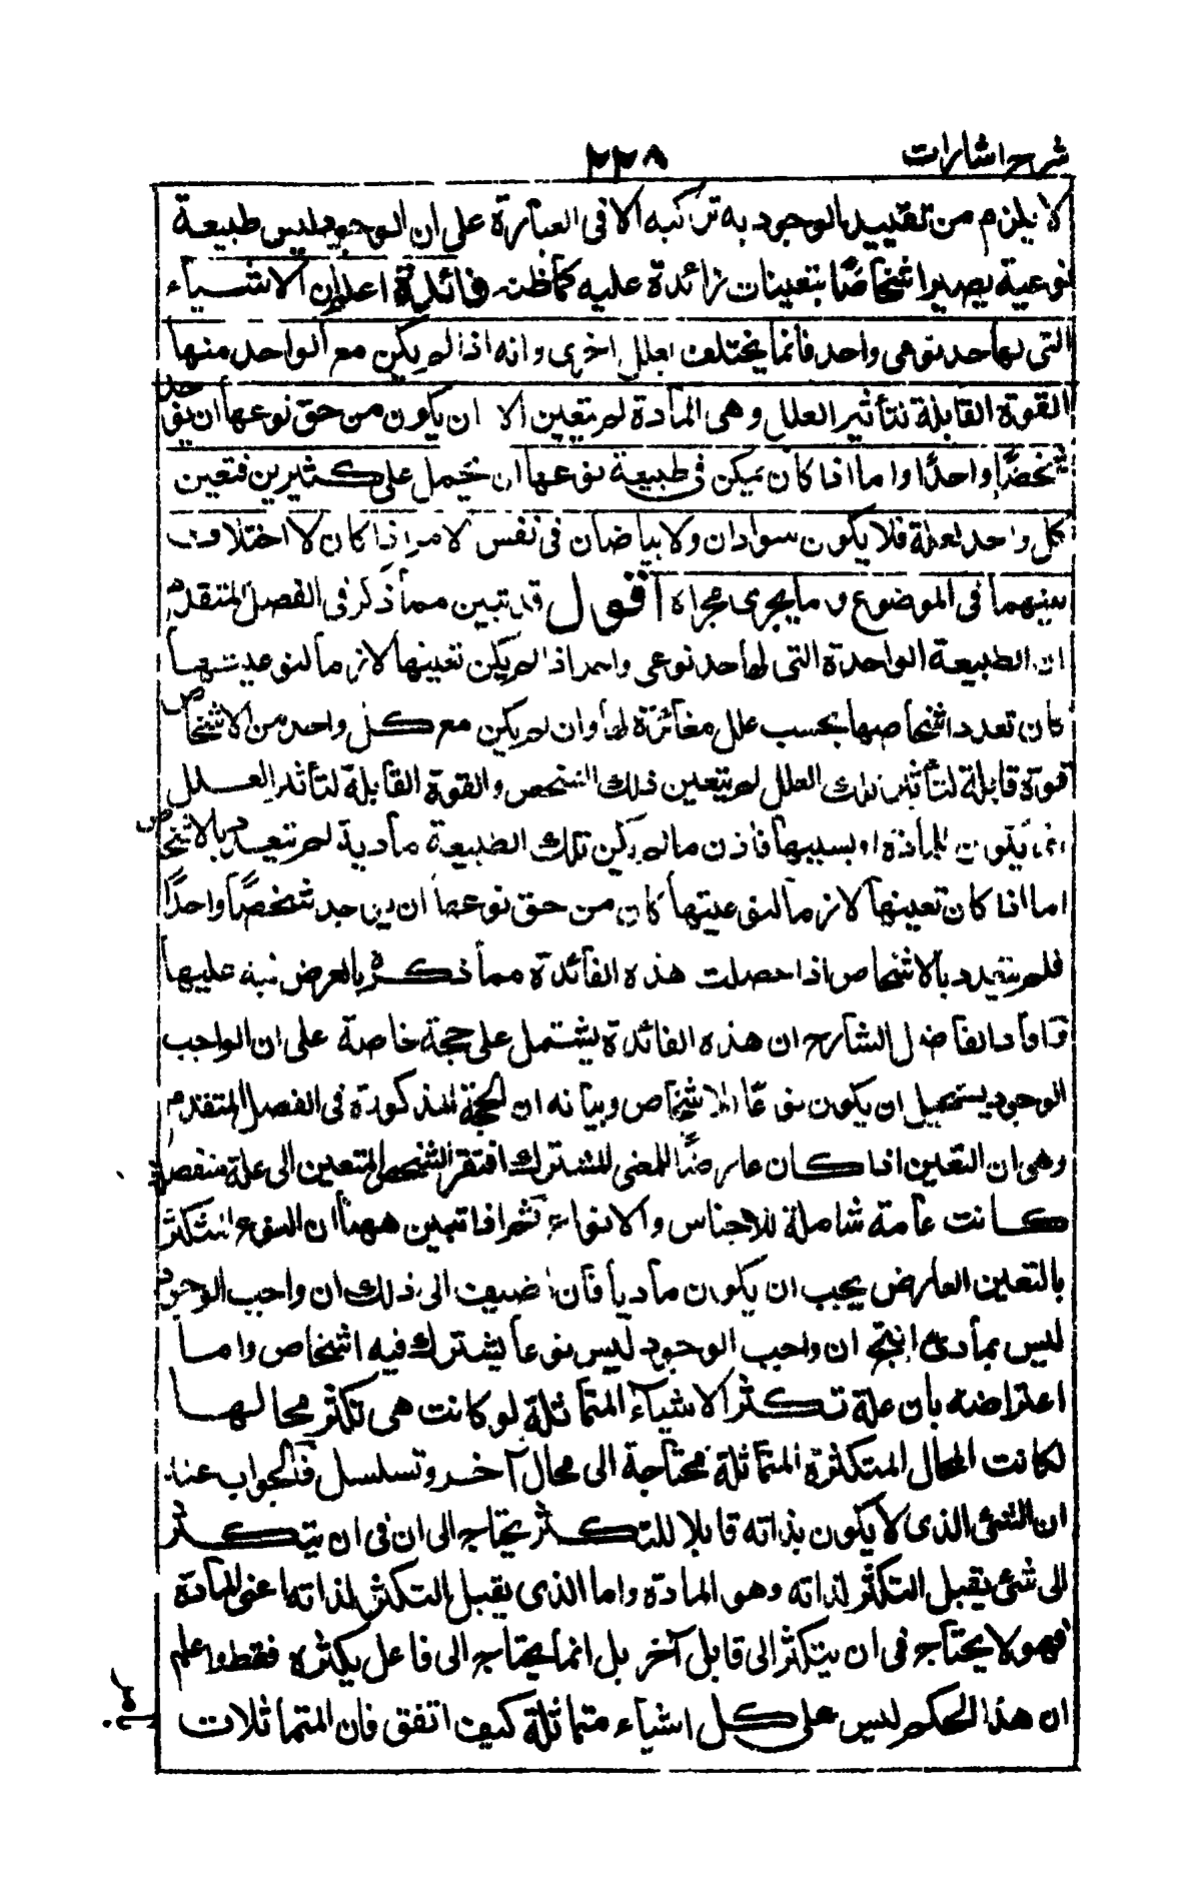 شرح اشارات ٢٢٨
لا يلزم من تقييد الوجود به تركبه الا فى العبارة على ان الوجود ليس طبيعة
نوعية يصير اشخاصًا بتعينات زائدة عليه كما ظنه فائدة اعلم ان الاشياء
التى لها حد نوعى واحد فانما يختلف بعلل اخرى وانه اذا لم يكن مع الواحد منها
القوة القابلة لتأثير العلل وهى المادة لم يتعين الا ان يكون من حق نوعها ان يوجد
شخصًا واحدًا واما اذا كان يمكن فى طبيعة نوعها ان تحمل على كثيرين فتعين
كل واحد لعلة فلا يكون سوادان ولا بياضان فى نفس الامر اذا كان لا اختلاف
بينهما فى الموضوع وما يجرى مجراه اقول قد تبين مما ذكر فى الفصل المتقدم
ان الطبيعة الواحدة التى لها حد نوعى واحد اذا لم يكن تعينها لازما لنوعيتها
كان تعدد اشخاصها بحسب علل مغائرة لها وان لم يكن مع كل واحد من الاشخاص
قوة قابلة لتأثير تلك العلل لم يتعين ذلك الشخص والقوة القابلة لتأثير العلل
انما يكون للمادة او بسببها فاذن ما لم يكن تلك الطبيعة مادية لم تتعدد بالاشخاص
اما اذا كان تعينها لازما لنوعيتها كان من حق نوعها ان يوجد شخصًا واحدًا
فلم يتعدد بالاشخاص اذا حصلت هذه الفائدة مما ذكره بالعرض نبه عليها
وافاد الفاضل الشارح ان هذه الفائدة يشتمل على حجة خاصة على ان الواجب
الوجود يستحيل ان يكون نوعًا لاشخاص وبيانه ان الحجة المذكورة فى الفصل المتقدم
وهى ان التعين اذا كان عارضًا للمعنى المشترك افتقر الشخص المتعين الى علة منفصلة
كانت عامة شاملة للاجناس والانواع ثم اذا تبين ههنا ان النوع المتكثر
بالتعين العارض يجب ان يكون ماديا فان اضيف الى ذلك ان واجب الوجود
ليس بمادى انتج ان واجب الوجود ليس نوعا يشترك فيه اشخاص واما
اعتراضه بان علة تكثر الاشياء المتماثلة لو كانت هى تكثر محالها
لكانت المحال المتكثرة المتماثلة محتاجة الى محال آخر وتسلسل فالجواب عنه
ان الشئ الذى لا يكون بذاته قابلا للتكثر يحتاج الى ان فى ان يتكثر
الى شئ يقبل التكثر لذاته وهو المادة واما الذى يقبل التكثر لذاته اعنى المادة
فهو لا يحتاج فى ان يتكثر الى قابل آخر بل انما يحتاج الى فاعل يكثره فقط واعلم
ان هذا الحكم ليس على كل اشياء متماثلة كيف اتفق فان المتماثلات